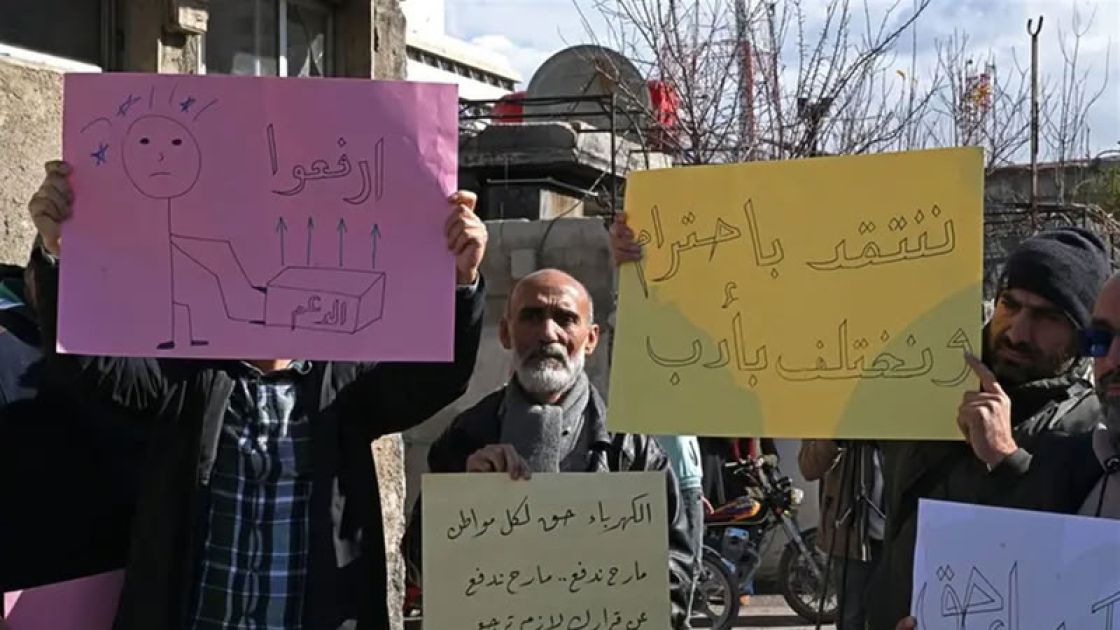 ارفعوا
الدعم
ننتقد باحترام
و نختلف بأدب
الكهرباء حق لكل مواطن
مارح ندفع .. مارح ندفع
عن قرارك لازم ترجع
حق